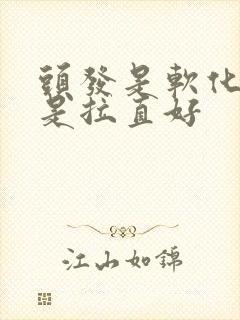 頭發是軟化
是拉直好
江山如錦